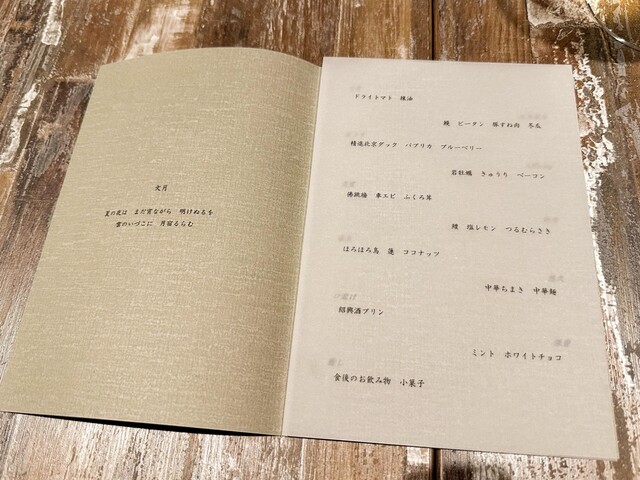 文月
夏の夜は まだ宵ながら 明けぬるを
雲のいづこに 月宿るらむ
ドライトマト 辣油
鰻 ピータン 豚すね肉 冬瓜
精進北京ダック パプリカ ブルーベリー
岩牡蠣 きゅうり ベーコン
佛跳牆 車エビ ふくろ茸
鱧 塩レモン つるむらさき
ほろほろ鳥 蓮 ココナッツ
中華ちまき 中華麺
紹興酒プリン
ミント ホワイトチョコ
食後のお飲み物 小菓子